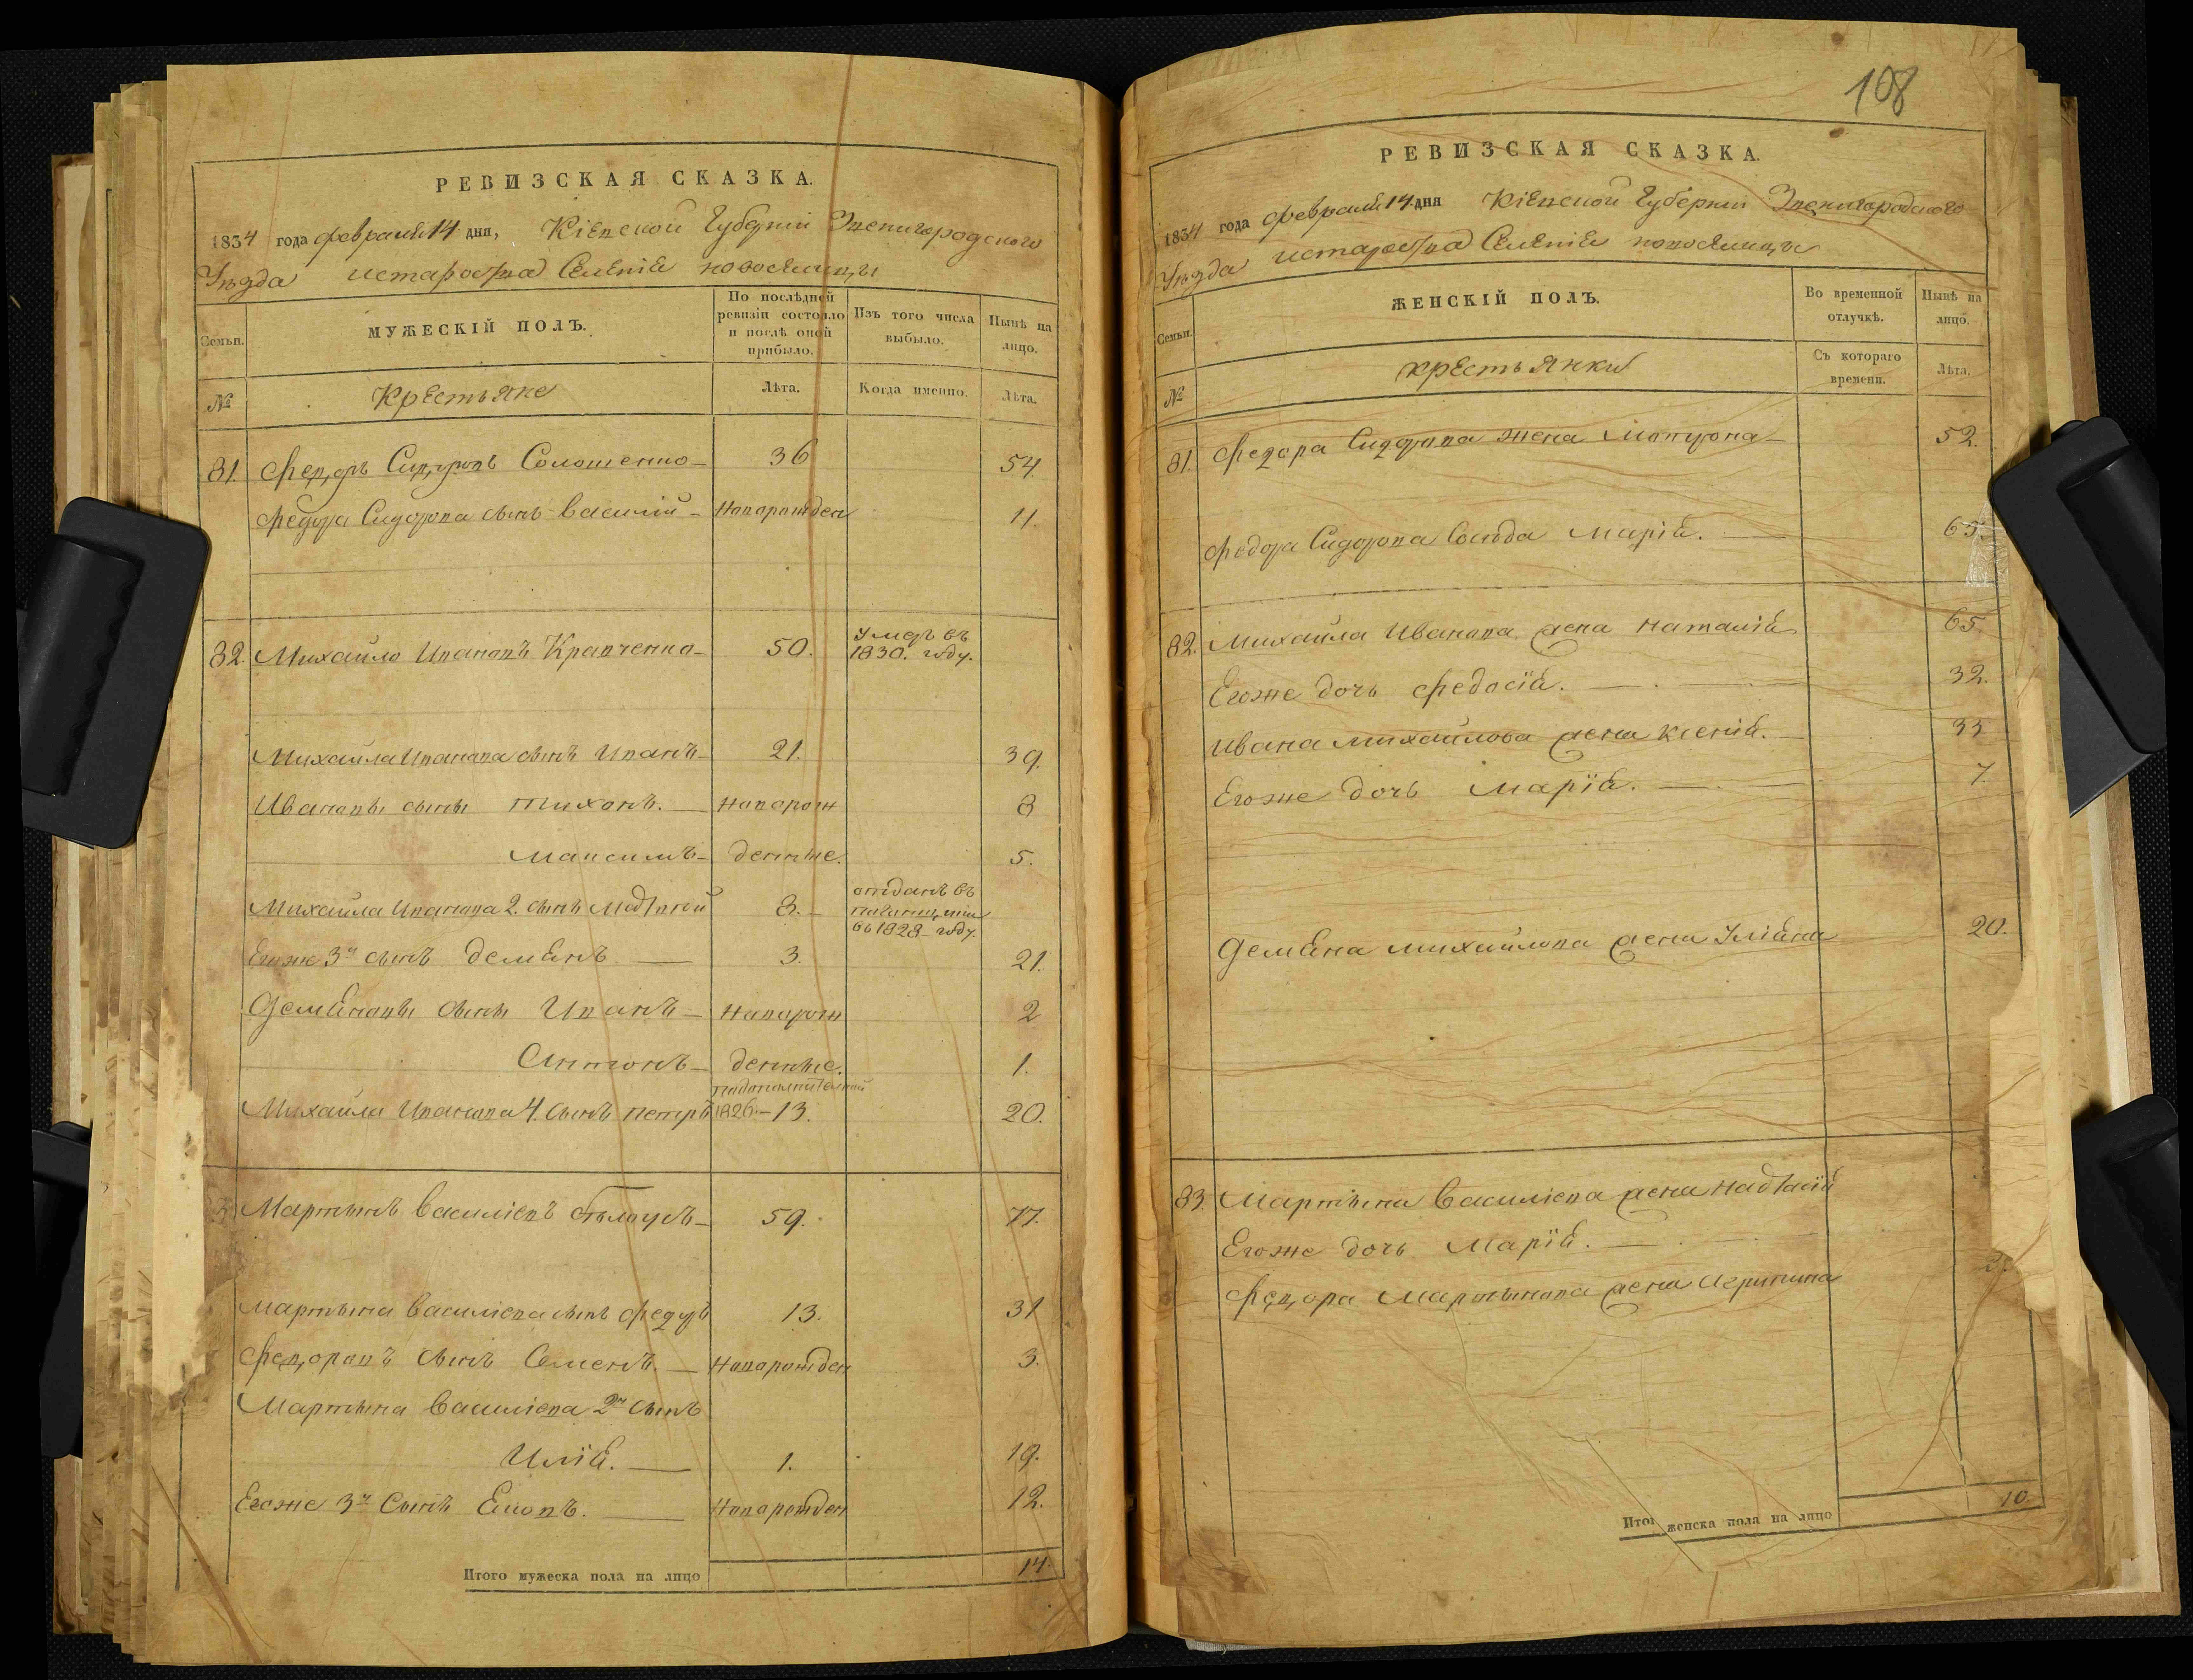 РЕВИЗСКАЯ СКАЗКА.
1834 года февраля 14 дня, Кіевской Губерніи Звенигородского
Уезда староства Селенія новоселицы
Семьи.
МУЖЕСКІЙ ПОЛЪ.
По послѣдней ревизіи состояло и послѣ оной прибыло.
Изъ того числа выбыло.
Нынѣ на лицо.
№
Крестьяне
Лѣта.
Когда именно.
Лѣта.
81. Федоръ Сидоровъ Соломенко 36 54.
Федора Сидорова сынъ василій Новорожден 11.
82. Михайло Ивановъ Кравченко 50. умеръ въ 1830. году.
Михайла Иванова сынъ Иванъ 21. 39.
Ивановы сыны тихонъ. новорож 8
максимъ денные. 5.
Михайла Иванова 2. сынъ 8. отданъ въ
въ 1828 году.
Егоже 3й сынъ демянъ 3. 21.
Демяновы сыны Иванъ новорож 2
Антонъ денные. 1.
Михайла Иванова 4. сынъ петръ 1826.-13. 20.
Мартынъ василіевъ белоусъ 59. 77.
Мартына василіева сынъ федоръ 13. 31
федоровъ сынъ Семенъ. Новорожден 3.
Мартына василіева 2й сынъ
Илія. 1. 19.
Егоже 3й Сынъ Новорожден 12.
Итого мужеска пола на лицо 14.
108
РЕВИЗСКАЯ СКАЗКА.
1834 года февраля 14 дня Кіевской Губерніи Звенигородского
Уезда староства Селенія новоселицы
Семьи.
ЖЕНСКІЙ ПОЛЪ.
Во временной отлучкѣ.
Нынѣ на лицо.
№
крестьянки
Съ котораго времени.
Лѣта.
81. Федора Сидорова жена Мотрона 52.
Федора Сидорова марія. 65.
82. Михайла Иванова жена наталія 65.
Егоже дочь федосія. 32.
Ивана михайлова жена ксенія. 35
Егоже дочь Марія. 7.
Демяна михайлова жена Уліяна 20.
83. Мартына василіева жена
Егоже дочь Марія.
федора мартынова жена Агрипина
Итог женска пола на лицо 10.